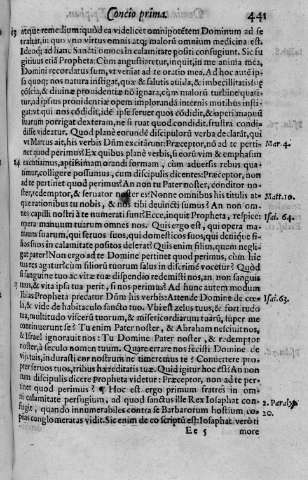 Concio prima. 441
itque remedium quid ea videlicet omnipotentem Dominum ad se
trahat, in quo vno virtus omnis atq; malorū omnium medicina est.
Ideoq; ad hanc Sancti omnes in calamitate positi confugiunt. Sic fi-
gurius etiā Propheta: Cùm angustiaretur, inquit, in me anima mea,
Domini recordatus sum, vt veniat ad te oratio mea. Ad hoc autē ip-
si quoq; nos natura instigat, quæ & salutis auida, & imbecillitatis sibi
cōscia, & diuinæ prouidentiæ nō ignara, cùm malorū turbine quati-
tur, ad ipsius prouidentiæ opem implorandā internis motibus insti-
gat: vt qui nos cōdidit, idē ipse seruet quos cōdidit, & iperit manuū
suarum porrigat dexteram, ne is ruat quod condidit, frustra condi-
disse videatur. Quod planè eorundē discipulorū verba declarāt, qui
vt Marcus ait, his verbis Dn̄m excitārunt: Præceptor, nō ad te perti- Mar 4.
net quod perimus? Ex quibus planè verbis, si eorū vim & emphasim
retineamus, aptissimam orandi formam, cùm aduersis rebus qua-
timur, colligere possumus, cum discipulis dicentes: Præceptor, non
ad te pertinet quod perimus? An non tu Pater noster, conditor no-
ster, redemptor, & seruator noster es? Nonne omnibus his titulis ab æ-
querationibus tu nobis, & nos tibi deuincti sumus? An non om- Matt. 10.
nes capilli nostri à te numerati sunt? Ecce, inquit Propheta, respice: Isai. 64.
opera manuum tuarum omnes nos. Quis ergo est, qui opera ma-
nuum suarum, qui seruos suos, qui domesticos suos, qui denique fi-
lios suos in calamitate positos deserat? Quis enim filium, quem negli-
gat pater? Non ergo ad te Domine pertinet quod perimus, cùm hic
nunc agitur causa filiorū tuorum salus in discrimē vocetur? Quod
si sanguine tuo ac vitæ tuæ dispendio redemisti nos, an non sanguis
tuus, & vita ipsa tua perit, si nos perimus? Ad hunc autem modum
Isaias Propheta precatur Dn̄m his verbis: Attende Domine de cœ- Isai. 63.
lo, & vide de habitaculo sancto tuo. Vbi est zelus tuus, & fortitudo
tua, multitudo viscerū tuorum, & miserationū tuarū, super me
continuerunt se? Tu enim Pater noster, & Abraham nesciuit nos,
& Israel ignorauit nos: Tu Domine Pater noster, & redemptor
noster, à seculo nomen tuum. Quare errare nos fecisti Domine de
vijs tuis, indurasti cor nostrum ne timeremus te? Conuertere pro-
pter seruos tuos, tribus hæreditatis tuæ. Quid igitur hoc est? An non
cum discipulis dicere Propheta videtur: Præceptor, non ad te per-
tinet quod perimus? Hoc ergo primum fratres in om-
ni calamitate perfugium, ad quod sanctus ille Rex Iosaphat con-
fugit, quando innumerabiles contra se Barbarorum hostium co- 2. Paralip.
pias conglomeratas vidit. Sic enim de eo scriptū est: Iosaphat verò ti- 20.
Ee 5 more